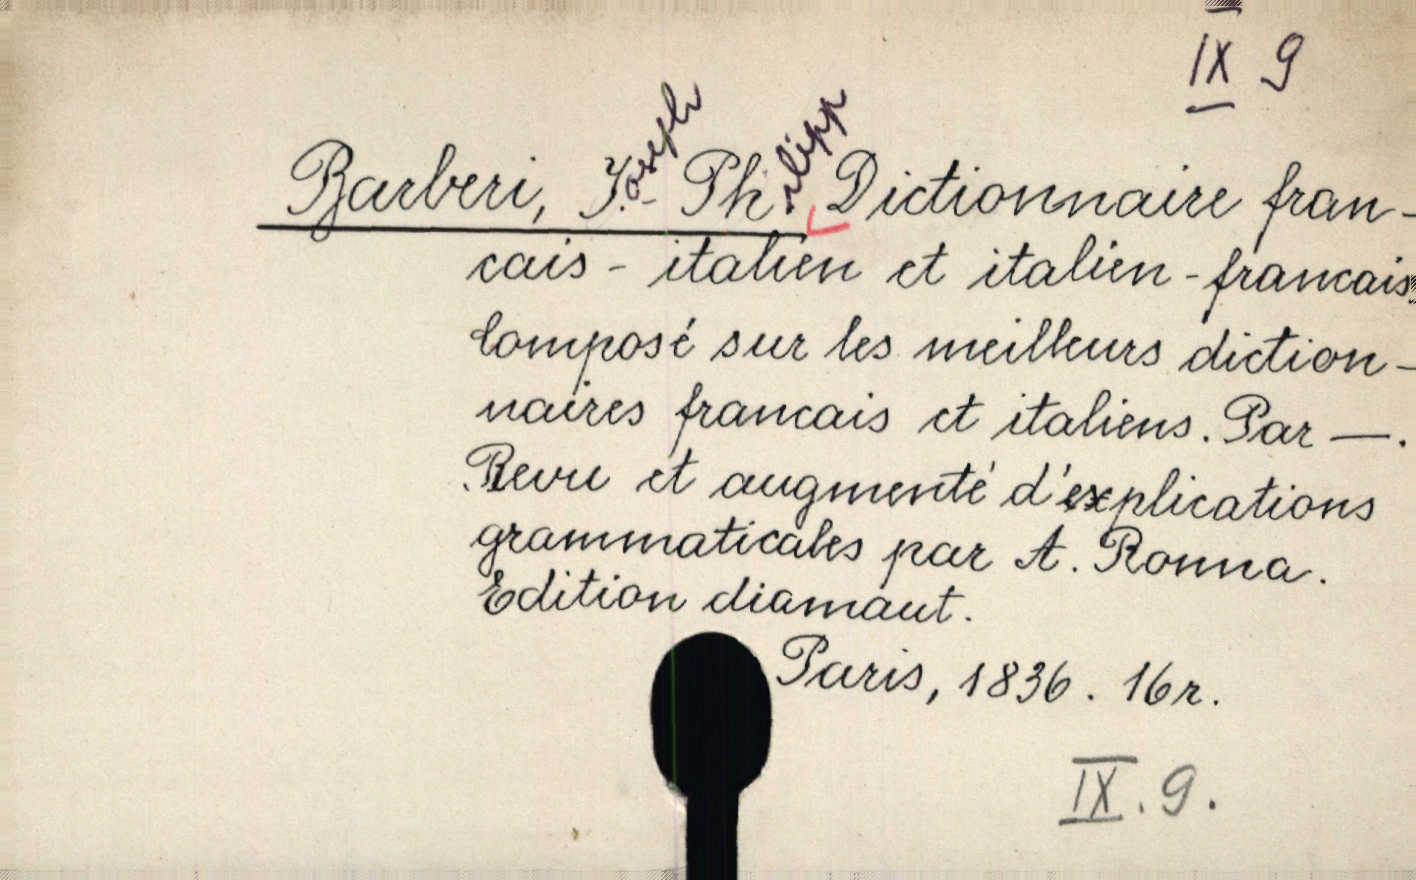 IX 9
Barberi, J.oseph - Ph.ilipp Dictionnaire fran-
cais - italien et italien - francais
Composé sur les meilleurs diction-
naires francais et italiens. Par —.
Revu et augmenté d'explications
grammaticales par A. Ronna.
Edition diamaut.
Paris, 1836. 16r.
IX. 9.